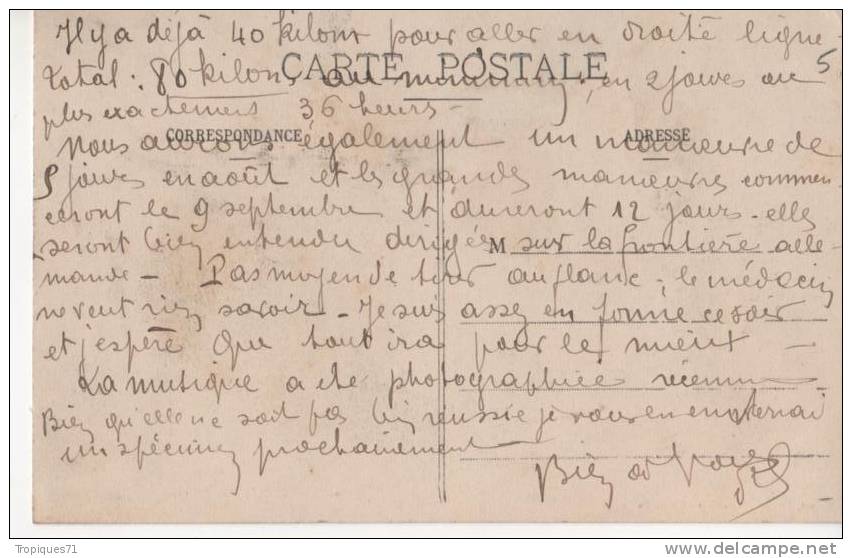 Il y a déjà 40 kilom pour aller en droite ligne
CARTE POSTALE
total : 80 kilom. au minimum, en 2 jours ou 5
plus exactement 36 heures -
CORRESPONDANCE
ADRESSE
Nous aurons également un manœuvre de
5 jours en août et les grandes manœuvres commen
ceront le 9 septembre et dureront 12 jours - elles
M
seront bien entendu dirigées sur la frontière alle
mande - Pas moyen de tirer au flanc ; le médecin
ne veut rien savoir - Je suis assez en forme ce soir
et j'espère que tout ira pour le mieux -
La musique a été photographiée récemm
Bien qu'elle ne soit pas bien réussie je vous en enverrai
un spécimen prochainement
Bien à vous
Tropiques71
www.delcampe.net